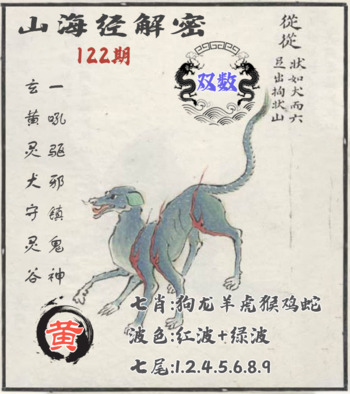 山海经解密
122期
双数
從從
狀如犬而六
足出拘狀山
玄黄灵犬守灵谷
一吼驱邪镇鬼神
黄
七肖:狗龙羊虎猴鸡蛇
波色:红波+绿波
七尾:1.2.4.5.6.8.9